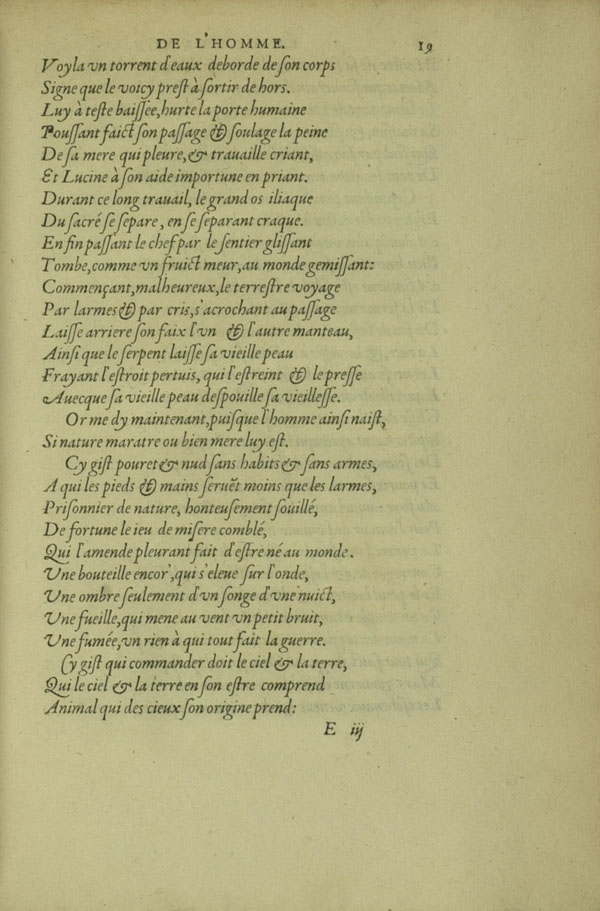 DE L'HOMME. 19
Voyla vn torrent d'eaux deborde de ſon corps
Signe que le voicy preſt à ſortir de hors.
Luy à teſte baiſſée, hurte la porte humaine
Pouſſant faict ſon paſſage & ſoulage la peine
De ſa mere qui pleure, & trauaille criant,
Et Lucine à ſon aide importune en priant.
Durant ce long trauail, le grand os iliaque
Du ſacré ſe ſepare, en ſe ſeparant craque.
En fin paſſant le chef par le ſentier gliſſant
Tombe, comme vn fruict meur, au monde gemiſſant:
Commençant, malheureux, le terreſtre voyage
Par larmes & par cris, s'acrochant au paſſage
Laiſſe arriere ſon faix l'vn & l'autre manteau,
Ainſi que le ſerpent laiſſe ſa vieille peau
Frayant l'eſtroit pertuis, qui l'eſtreint & le preſſe
Auecque ſa vieille peau deſpouille ſa vieilleſſe.
Or me dy maintenant, puiſque l'homme ainſi naiſt,
Si nature maratre ou bien mere luy eſt.
Cy giſt pouret & nud ſans habits & ſans armes,
A qui les pieds & mains ſeruẽt moins que les larmes,
Priſonnier de nature, honteuſement ſouillé,
De fortune le ieu de miſere comblé,
Qui l'amende pleurant fait d'eſtre né au monde.
Vne bouteille encor', qui s'eleue ſur l'onde,
Vne ombre ſeulement d'vn ſonge d'vne nuict,
Vne fueille, qui mene au vent vn petit bruit,
Vne fumée, vn rien à qui tout fait la guerre.
Cy giſt qui commander doit le ciel & la terre,
Qui le ciel & la terre en ſon eſtre comprend
Animal qui des cieux ſon origine prend:
E iij